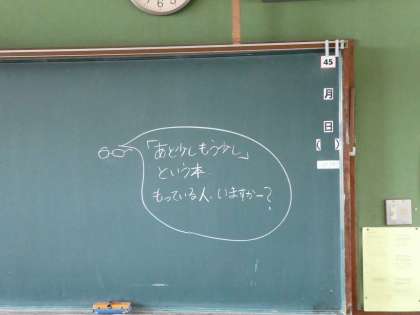 「あと少しもう少し」
という本
もっている人、いますかー?
45
月
日
( )